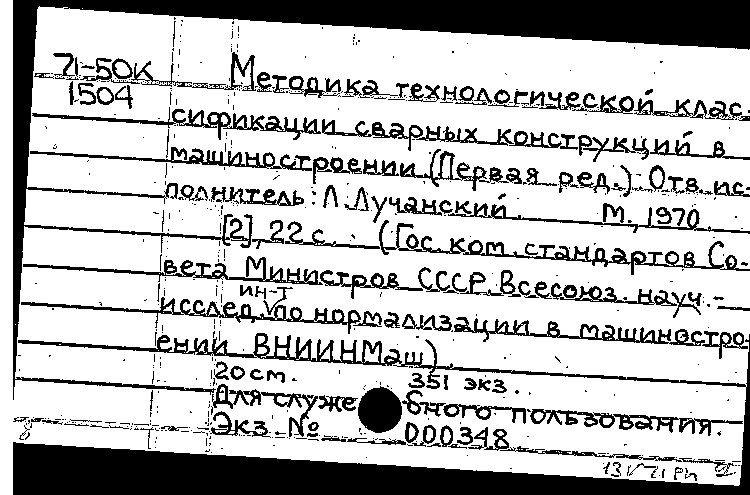 71-50К
1504
Методика технологической клас-
сификации сварных конструкций в
машиностроении (Первая ред.) Отв. ис-
полнитель: Л. Лучанский. М., 1970.
[2], 22 с. (Гос. ком. стандартов Со-
вета Министров СССР. Всесоюз. науч.-
исслед. ин-т по нормализации в машиностро-
ении ВНИИНМаш).
20 см. 351 экз.
Для служебного пользования.
Экз. № 000348